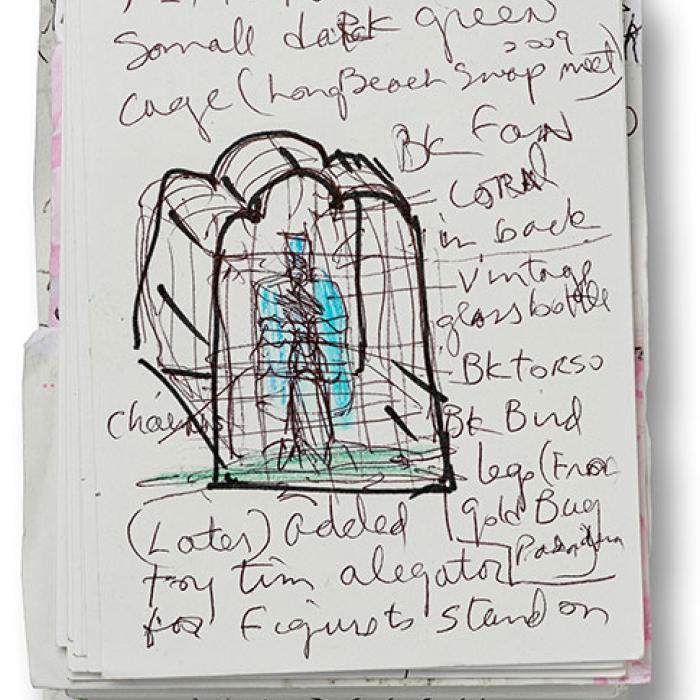 Small dark green
2009
cage (Long Beach Swap meet)
Bk Fan
CORAL
in back
vintage
glass bottle
Bk torso
chains
Bk Bird
legs (From
gold Bug
Pasadena
(Later) Added
toy tin alegator
for Figures to Stand on